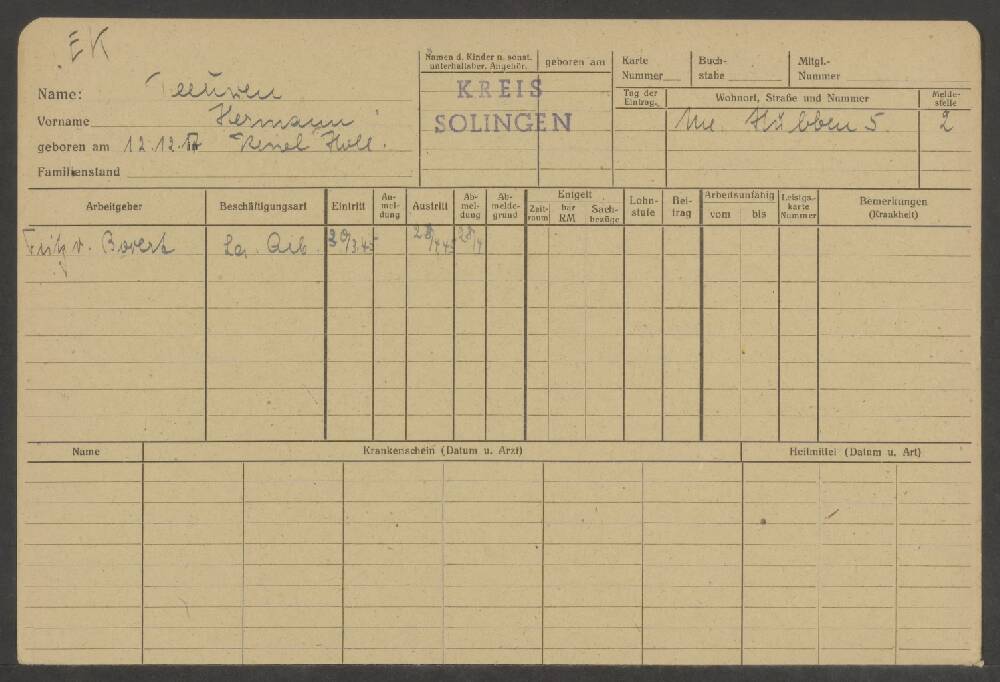 EK
Name: Teeuwen
Vorname Hermann
geboren am 12.12.
Familienstand
Namen d. Kinder u. sonst. unterhaltsber. Angehör.
geboren am
KREIS
SOLINGEN
Karte Nummer
Buchstabe
Mitgl.-Nummer
Tag der Eintrag.
Wohnort, Straße und Nummer
Meldestelle
Hübben 5. 2
Arbeitgeber
Beschäftigungsart
Eintritt
Anmeldung
Austritt
Abmeldung
Abmeldegrund
Entgelt
Zeitraum
bar RM
Sachbezüge
Lohnstufe
Beitrag
Arbeitsunfähig
vom
bis
Leistgs.-karte Nummer
Bemerkungen
(Krankheit)
Fritz v. Bovert
Name
Krankenschein (Datum u. Arzt)
Heilmittel (Datum u. Art)